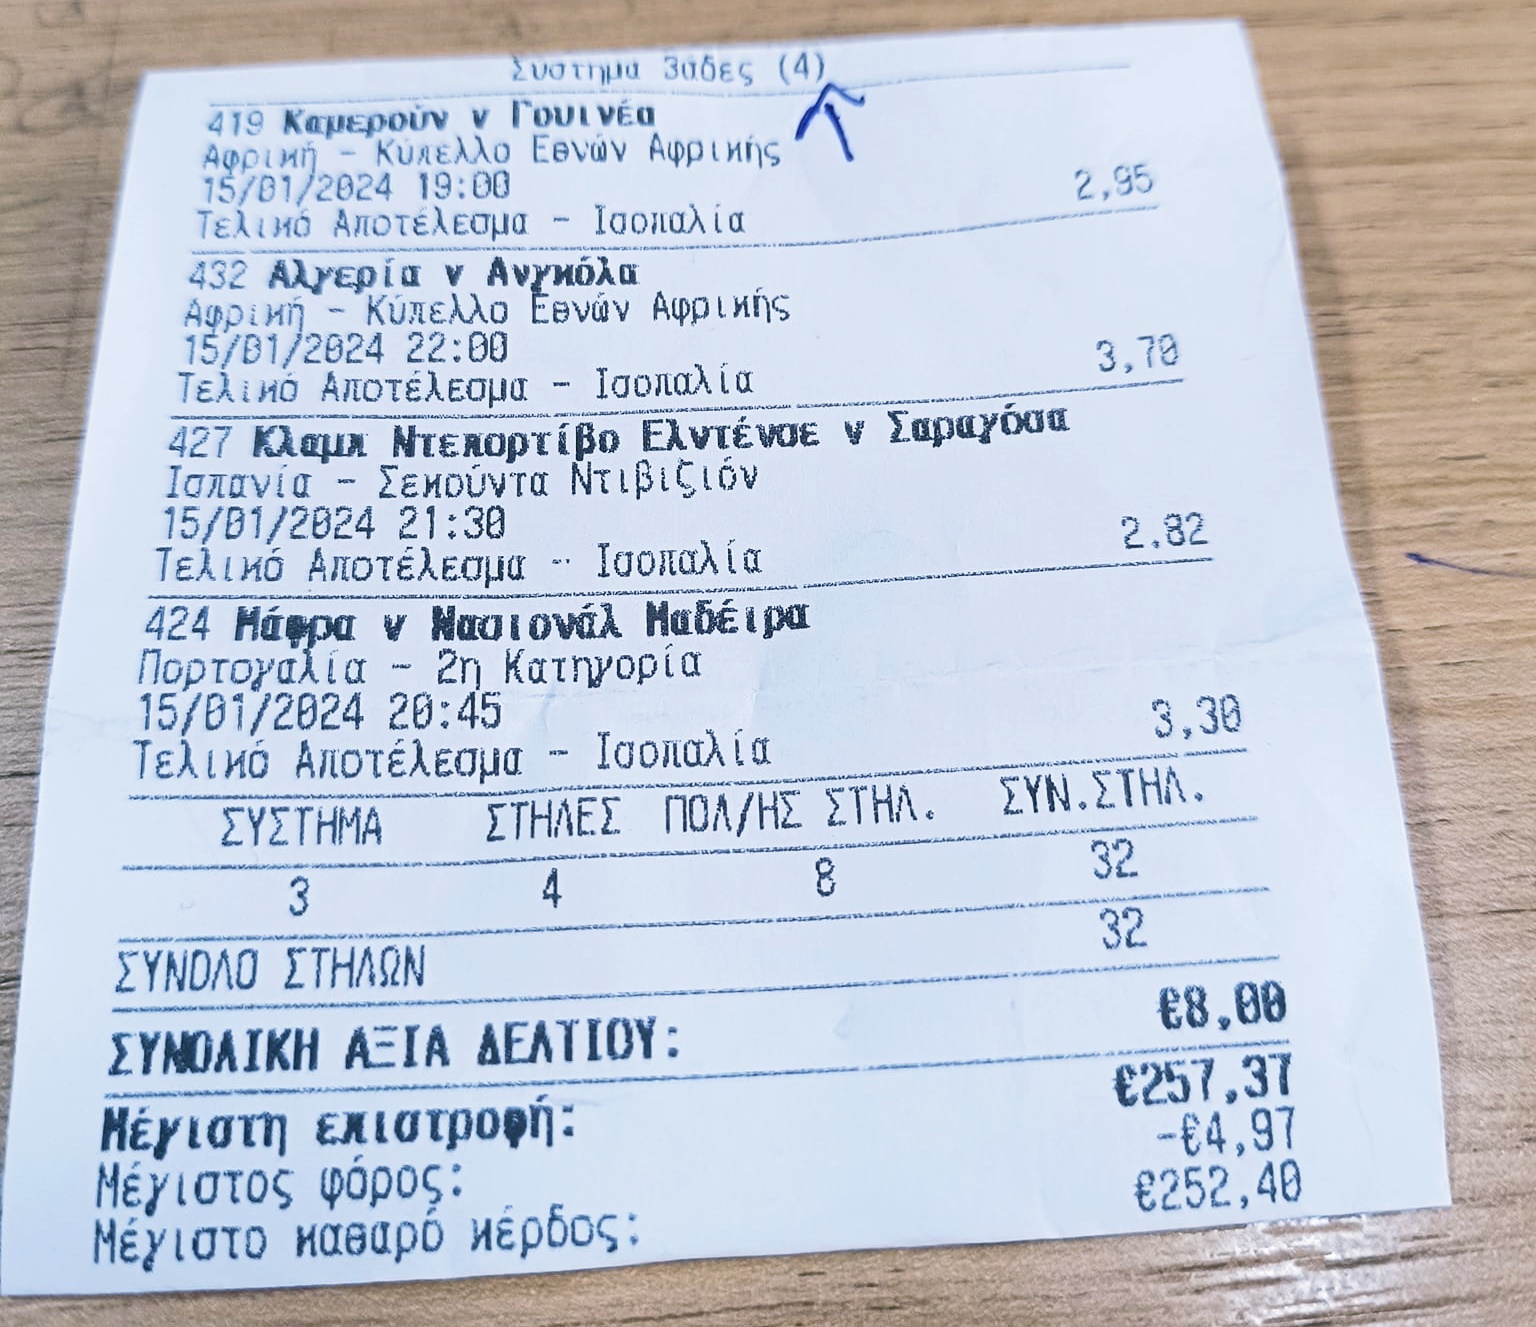 Σύστημα 3άδες (4)
419 Καμερούν v Γουινέα
Αφρική - Κύπελλο Εθνών Αφρικής
15/01/2024 19:00 2,95
Τελικό Αποτέλεσμα - Ισοπαλία
432 Αλγερία v Ανγκόλα
Αφρική - Κύπελλο Εθνών Αφρικής
15/01/2024 22:00 3,70
Τελικό Αποτέλεσμα - Ισοπαλία
427 Κλαμπ Ντεπορτίβο Ελντένσε v Σαραγόσα
Ισπανία - Σεκούντα Ντιβιζιόν
15/01/2024 21:30 2.82
Τελικό Αποτέλεσμα - Ισοπαλία
424 Μάφρα v Νασιονάλ Μαδέιρα
Πορτογαλία - 2η Κατηγορία
15/01/2024 20:45 3,30
Τελικό Αποτέλεσμα - Ισοπαλία
ΣΥΣΤΗΜΑ ΣΤΗΛΕΣ ΠΟΛ/ΗΣ ΣΤΗΛ. ΣΥΝ.ΣΤΗΛ.
3 4 8 32
ΣΥΝΟΛΟ ΣΤΗΛΩΝ 32
ΣΥΝΟΛΙΚΗ ΑΞΙΑ ΔΕΛΤΙΟΥ: €8,00
Μέγιστη επιστροφή: €257,37
Μέγιστος φόρος: -€4,97
Μέγιστο καθαρό κέρδος: €252,40